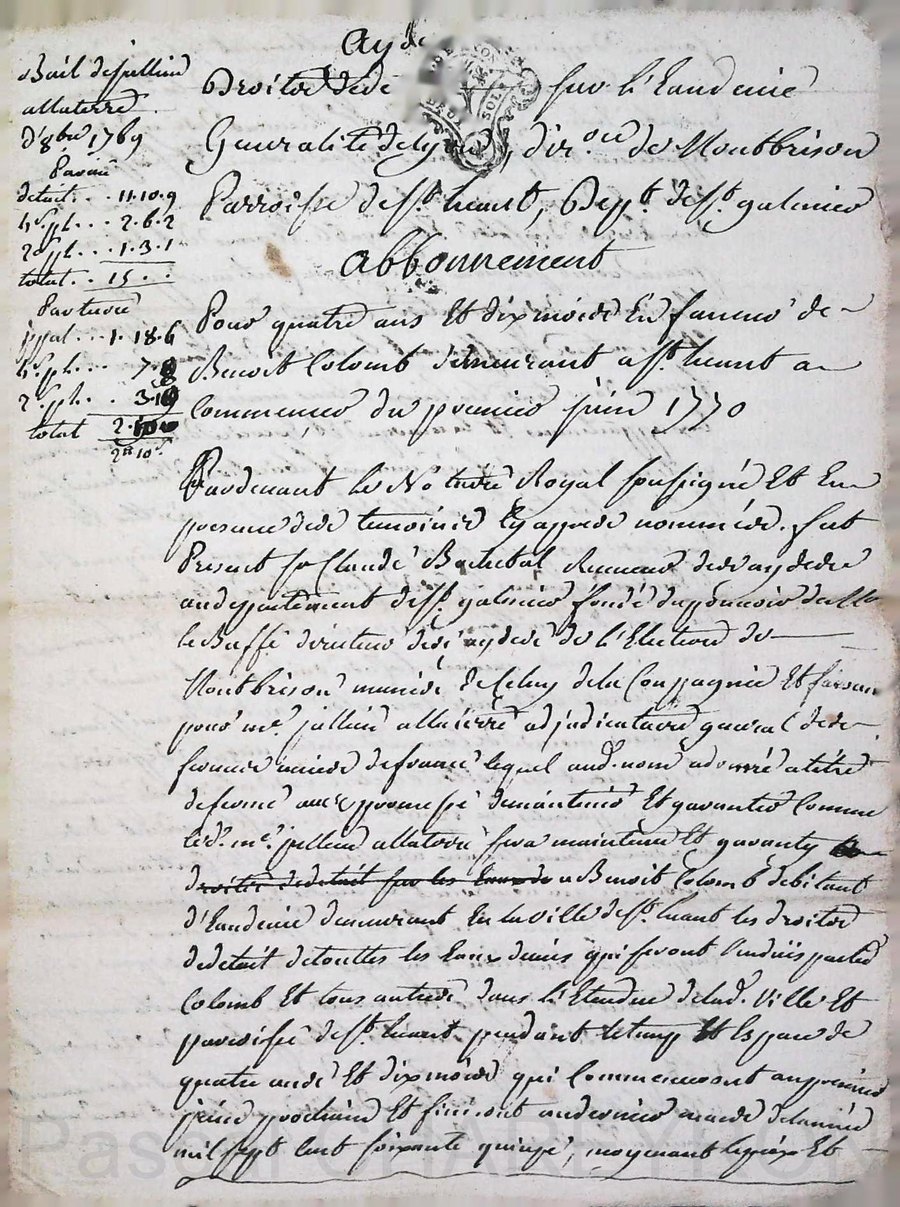 Aydes
Droits de sur l'Eaudevie
Generalité de Lyon, dir.on de Montbrison
Parroisse de St. heant, Depp.t de St. galmier
abbonnement
Bail de jullien
allaterre
d'8bre 1769
Par an
detail . . 11.10.9
4s. p.l. . . 2.6.2
2s p.l. . . 1.3.1
total . . 15 . .
ppal . . 1.18.6
4s. p.l. . . 7.8
2s. p.l. . .
total
2# 10s
Pour quatre ans Et dix mois En faveur de
Benoit Colomb demeurant a St. heant a
Commencer du premier juin 1770
Pardevant le Notaire Royal soussigné Et En
presence des temoins Cy apres nommés. fut
Present sr Claude Receveur des aydes
au deppartement de St. galmier fondé du pouvoir de Mr
le Buffe directeur des aydes de l'Election de
Montbrison muni de Celuy de la Compagnie Et faisant
pour me. jullien allaterre adjudicataire general des
fermes unies de france lequel aud. nom a donné a titre
de ferme avec promesse de maintenir Et garantir Comme
led. me. jullien allaterre sera maintenu Et garanty
droits de detail sur les Eaux de a Benoit Colomb debitant
d'Eaudevie demeurant En la ville de St. heant les droits
de detail de touttes les Eaux devies qui seront vendues par led.
Colomb Et tous autres dans l'Etendue de lad. Ville Et
parroisse de St. heant pendant le temp Et Espace de
quatre ans Et dix mois qui Commenceront au premier
juin prochain Et finiront au dernier mars de l'année
mil sept Cent soixante quinze, moyenant le prix Et
Pascal CHAREYRON